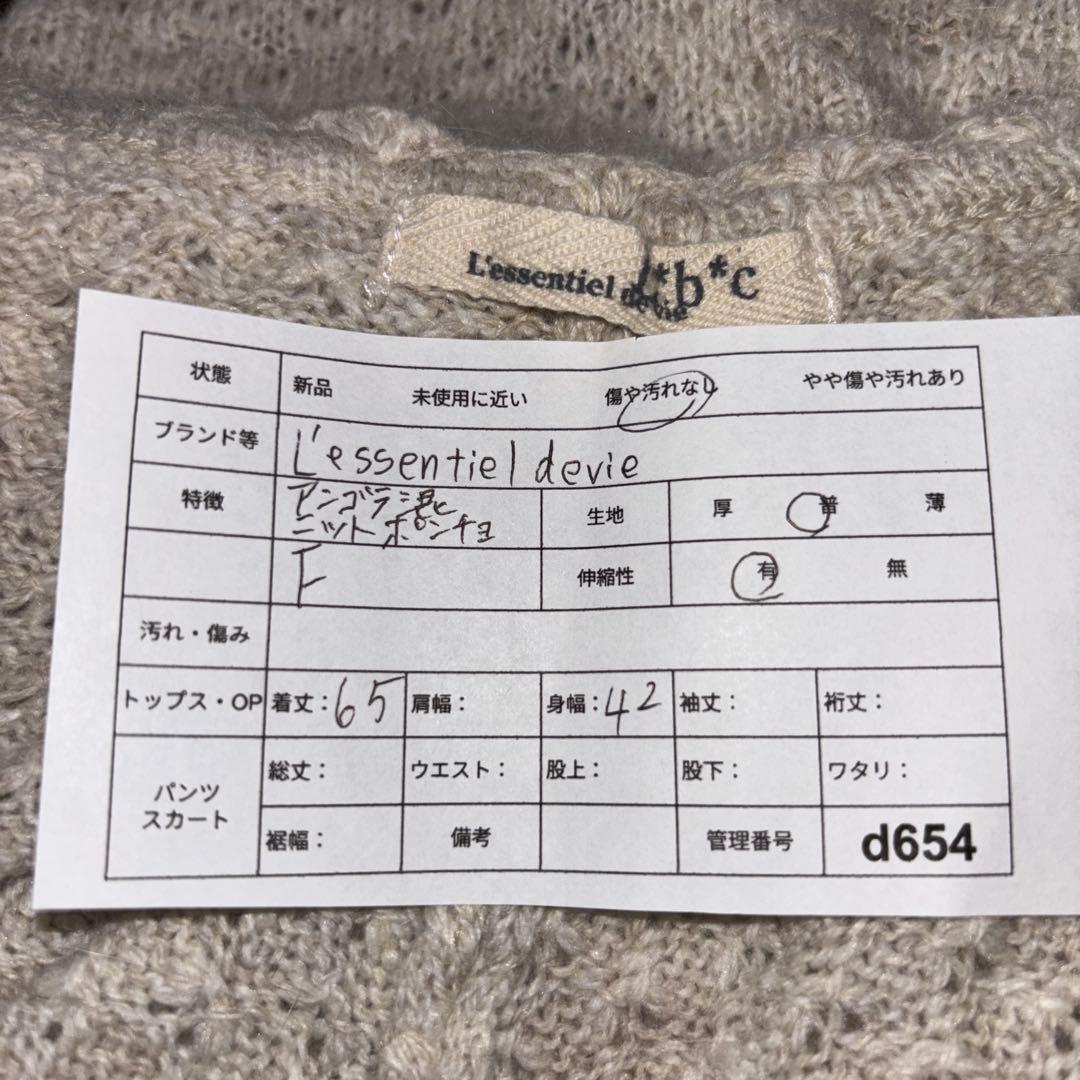 L'essentiel devie
*b*c
状態 新品 未使用に近い 傷や汚れなし やや傷や汚れあり
ブランド等 L'essentiel devie
特徴 アンゴラ混 生地 厚 普 薄
ニットポンチョ
F 伸縮性 有 無
汚れ・傷み
トップス・OP 着丈：65 肩幅： 身幅：42 袖丈： 裄丈：
パンツ スカート 総丈： ウエスト： 股上： 股下： ワタリ：
裾幅： 備考 管理番号 d654